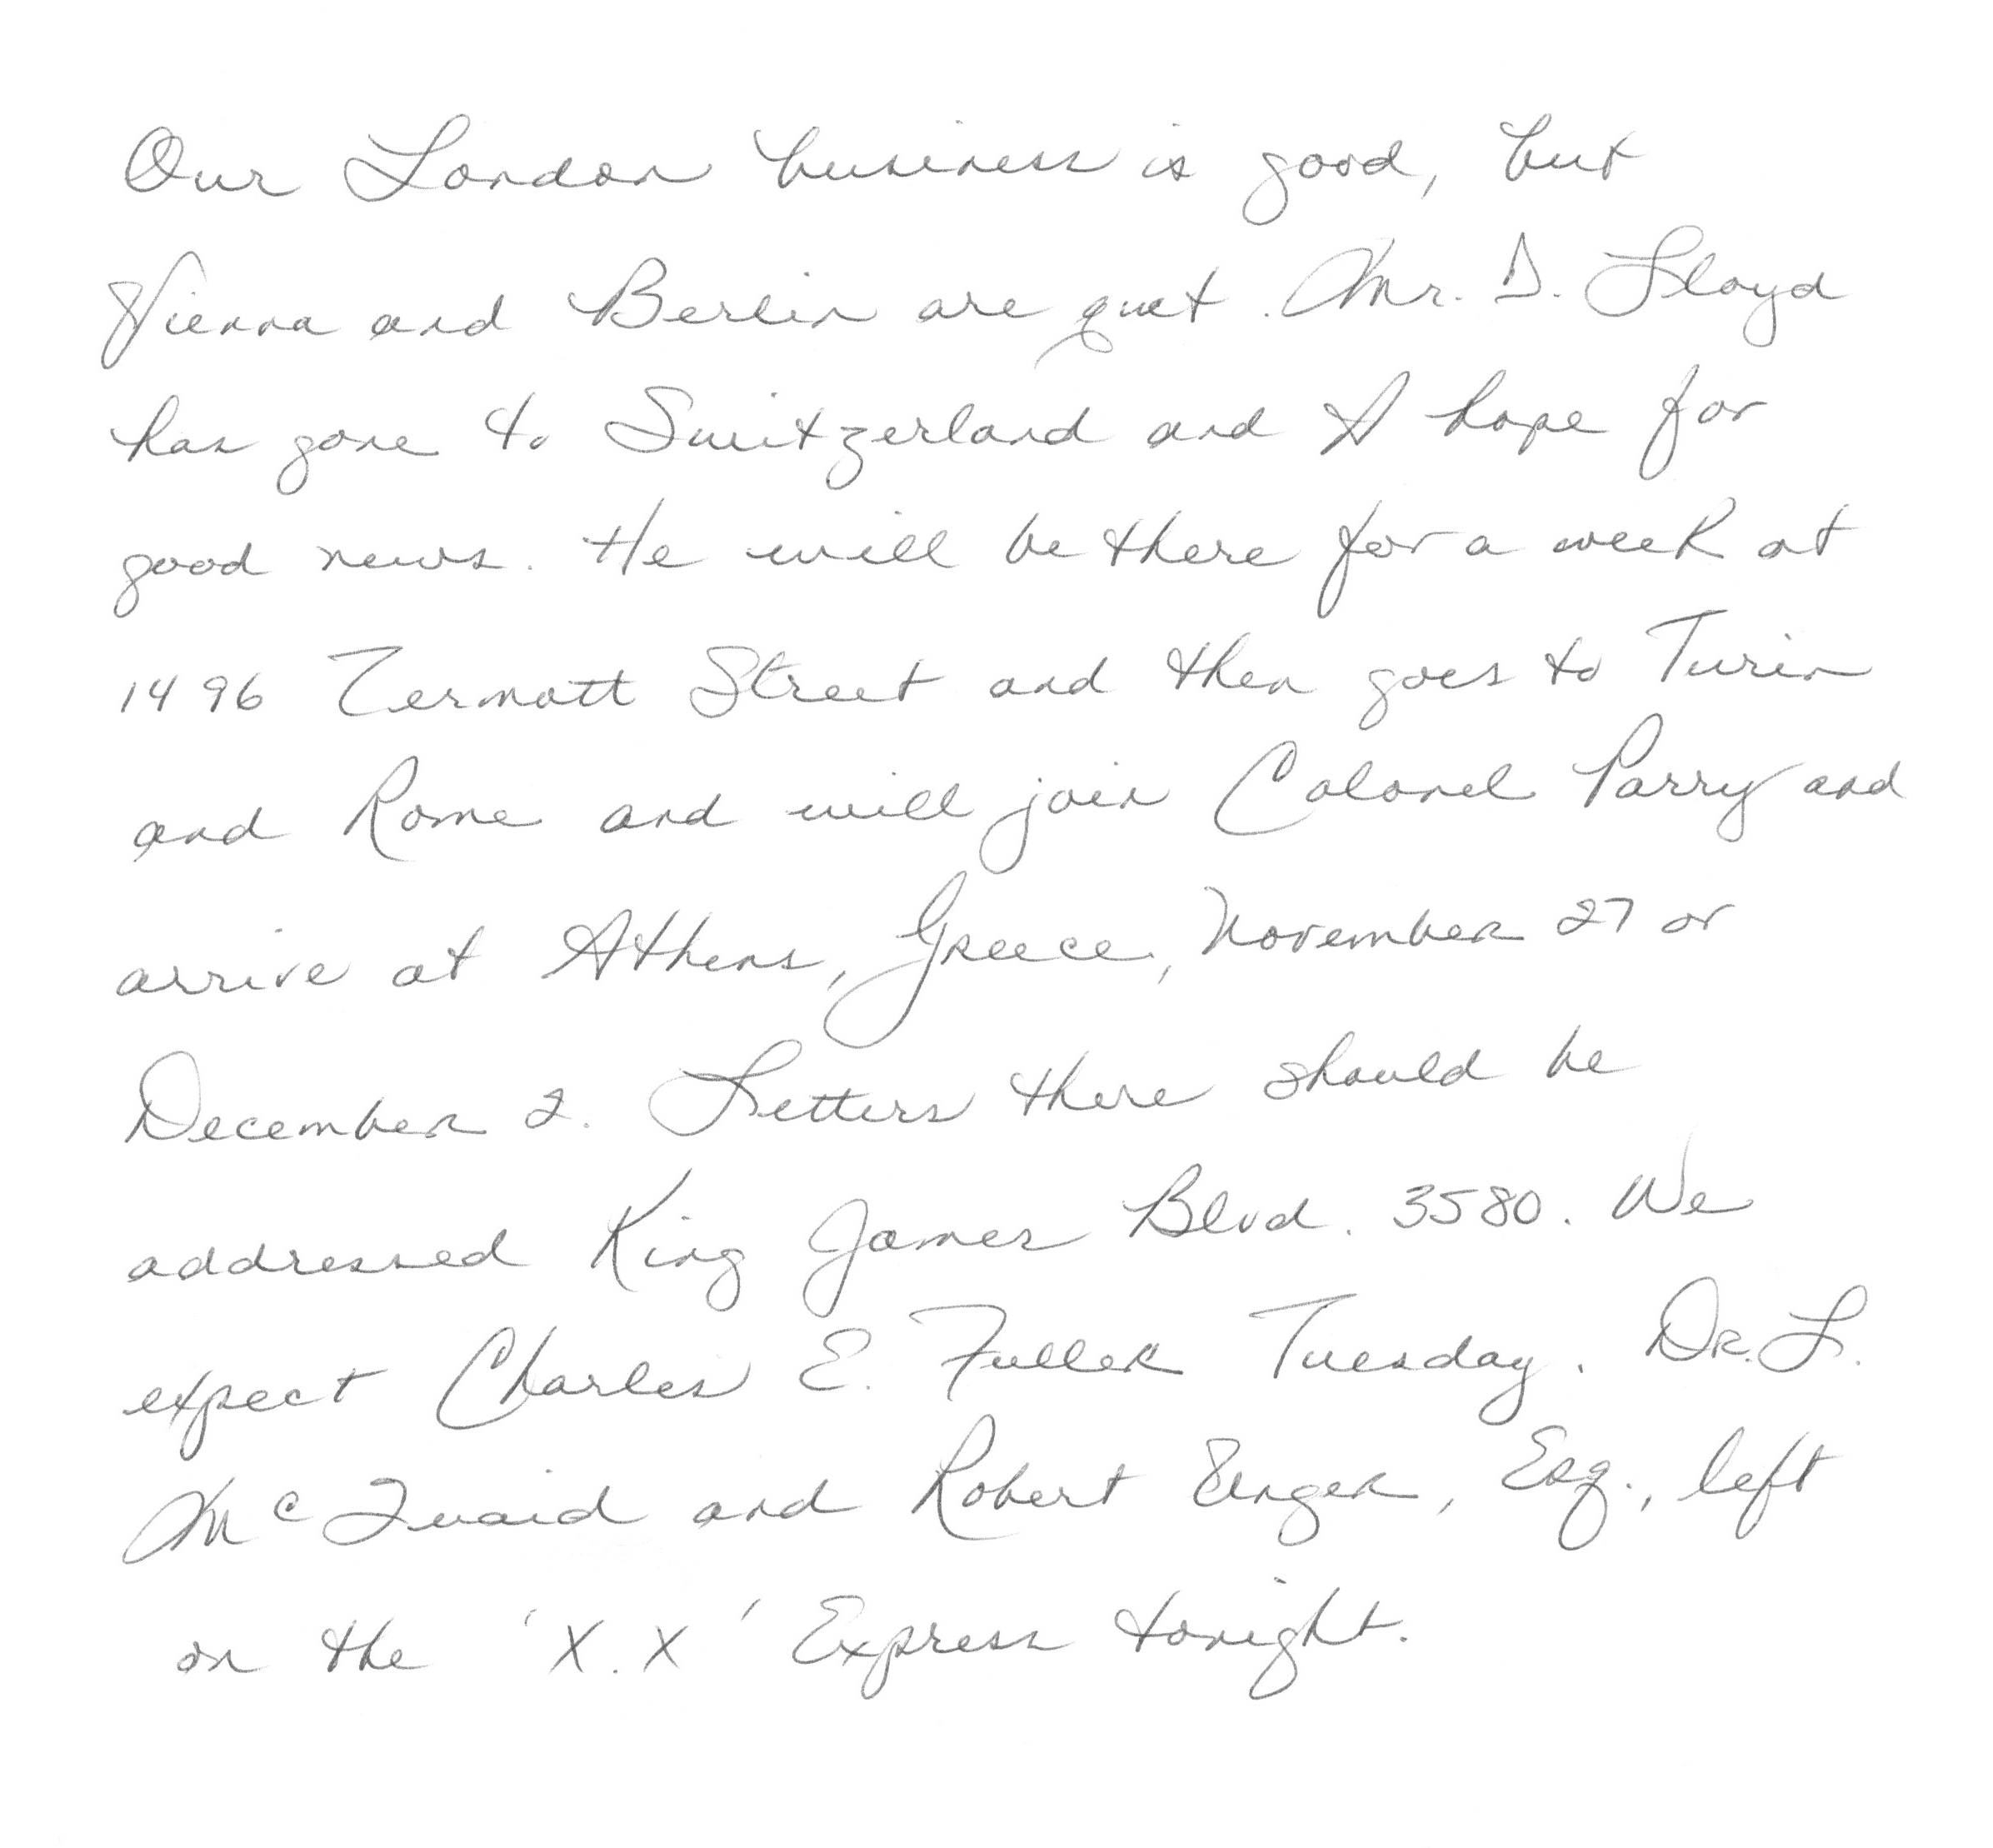 Our London business is good, but
Vienna and Berlin are quiet. Mr. D. Lloyd
has gone to Switzerland and I hope for
good news. He will be there for a week at
1496 Zermott Street and then goes to Turin
and Rome and will join Colonel Parry and
arrive at Athens, Greece, November 27 or
December 2. Letters there should be
addressed King James Blvd. 3580. We
expect Charles E. Fuller Tuesday. Dr. L.
McQuaid and Robert Unger, Esq., left
on the 'X.X' Express tonight.